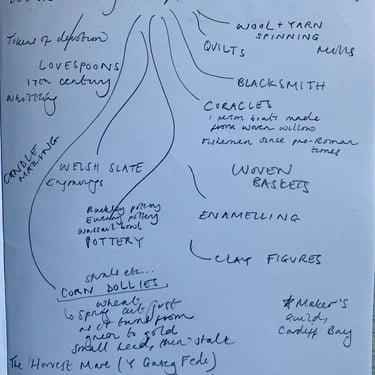 WOOL + YARN
SPINNING
QUILTS
Tokens of devotion
LOVESPOONS
17th century
Whittling
BLACKSMITH
CORACLES
1 person boats made
from woven willow
Fishermen since pre-Roman
times
CANDLE
MAKING
WELSH SLATE
Engravings
WOVEN
BASKETS
Buckley pottery
Ewenny pottery
Wassail bowl
POTTERY
ENAMELLING
CLAY FIGURES
etc...
CORN DOLLIES
wheat
cut just
as it turns from
green to gold
small then stalk
* Maker's
Guild,
Cardiff Bay
The Harvest Mare (Y Gaseg Fedi)